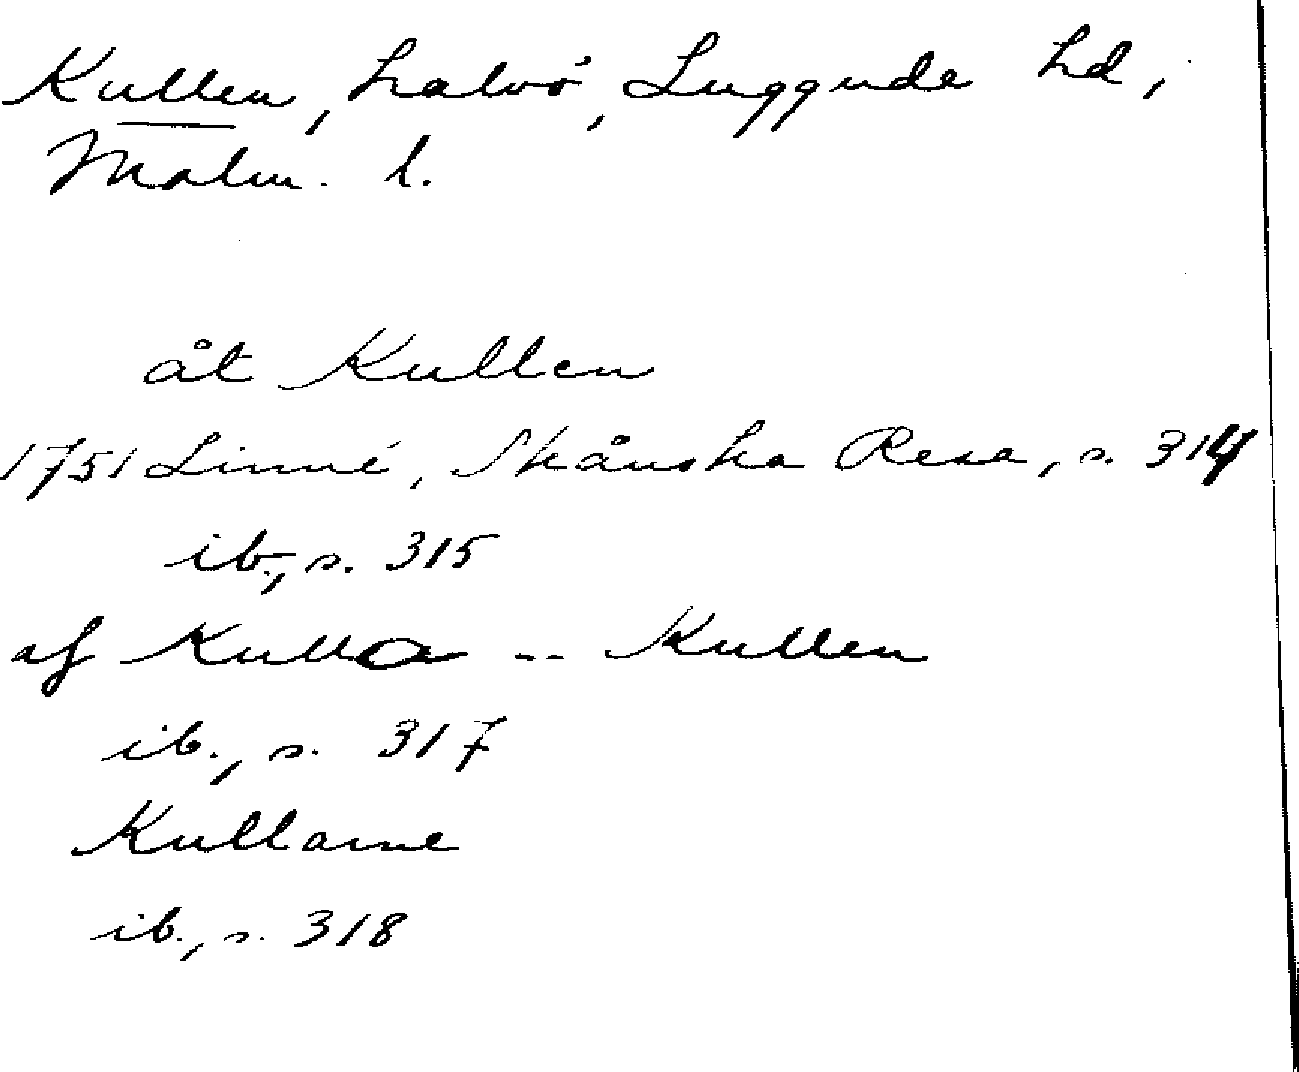 Kullen, halvö, Luggude hd,
Malm. l.
åt Kullen
1751 Linné, Skånska Resa, s. 314
ib., s. 315
af Kulla -- Kullen
ib., s. 317
Kullarne
ib., s. 318